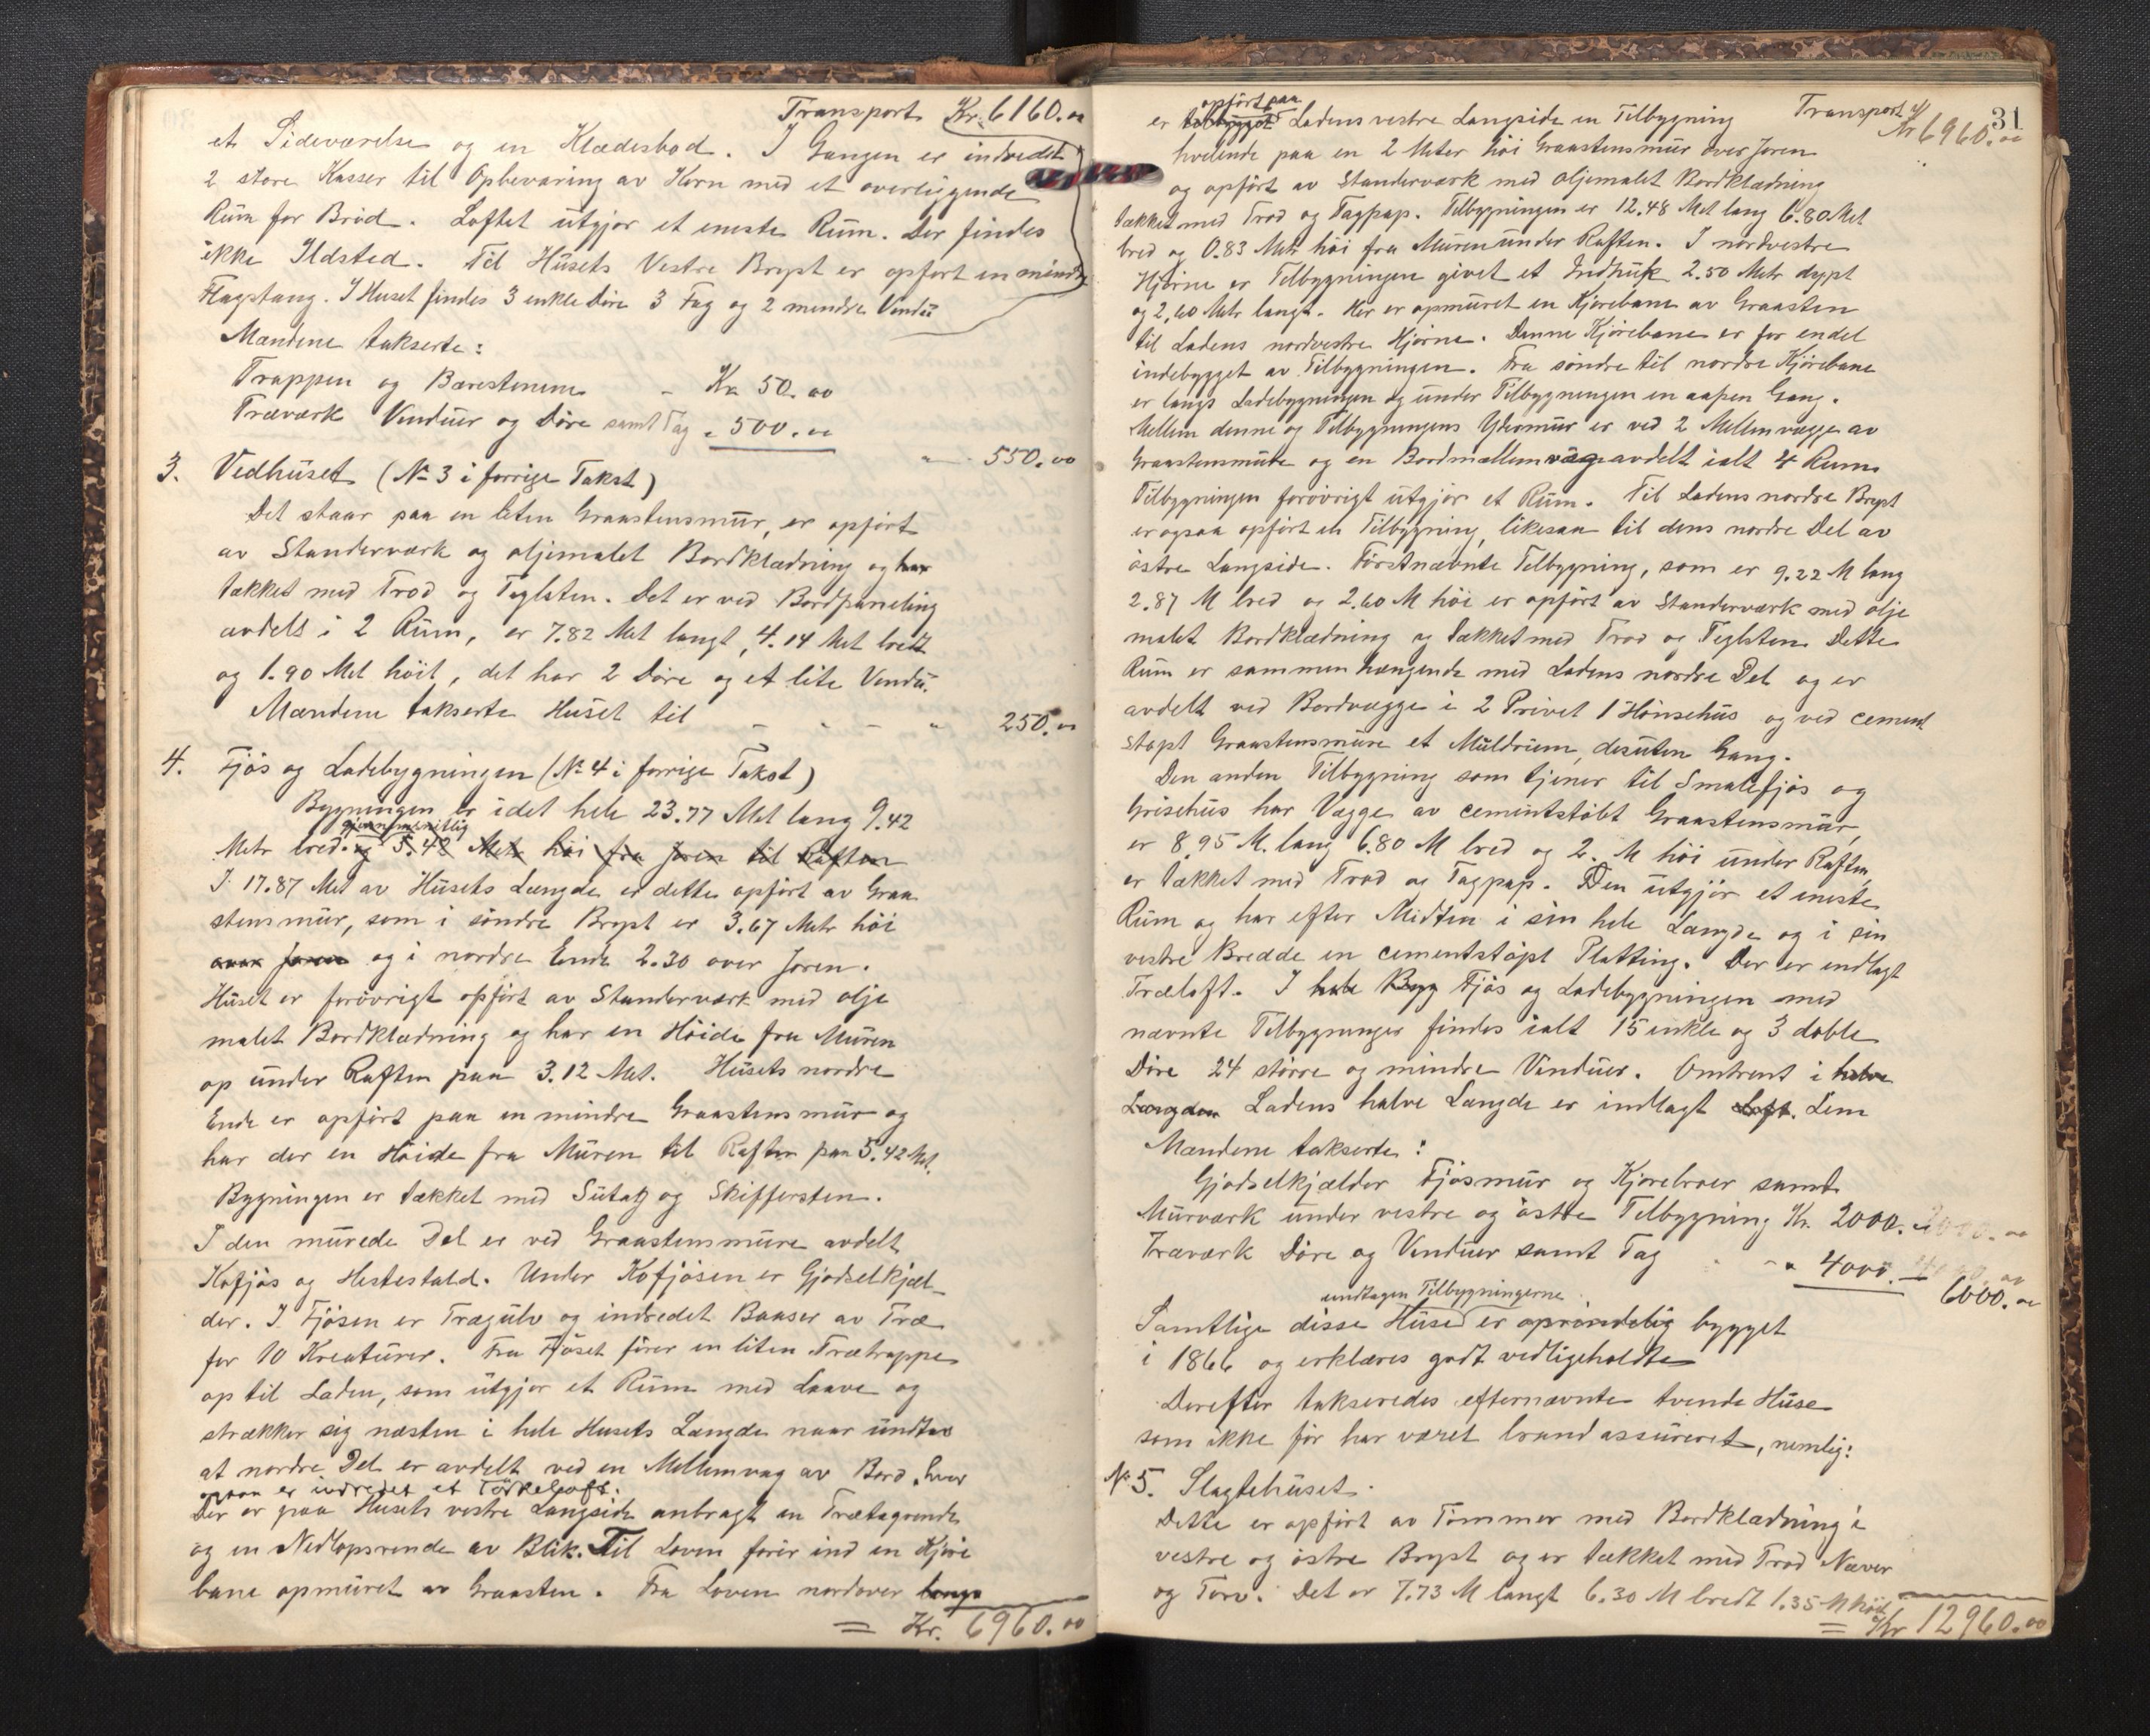 Transport Kr. 6160.00
et Sideværelse og en Klædesbod. I Gangen er indredet
2 store Kasser til Opbevaring av Korn med et overliggende
Rüm for Brød. Loftet ütgjør et eneste Rüm. Der findes
ikke Ildsted. Til Hüsets Vestre Bryst er opført en mindre
Flagstang. I Huset findes 3 enkle Döre 3 Fag og 2 mindre Vindü
Mændene takserte:
Trappen og Bærestenene - Kr 50.00
Træværk Vindüer og Döre samt Tag " 500.00
" - 550.00
3. Vedhüset (No 3 i forrige Takst)
Det staar paa en liten Graastensmür, er opført
av Standerværk og oljemalet Bordklædning og har
tækket med Trod og Teglsten. Det er ved Bordpaneling
avdelt i 2 Rüm, er 7.82 Met langt, 4.14 Met bredt
og 1.90 Met höit, det har 2 Döre og et lite Vindü.
Mændene takserte Huset til - - - " 250.00
4. Fjös og Ladebygningen (No 4 i forrige Takst)
Bygningen er i det hele 23.77 Met lang 9.42
gjennemsnitlig
Metr bred og 5.42 Metr höi fra Joren til Raften
I 17.87 Met av Hüsets Længde er dette opført av Graa
stensmür, som i söndre Bryst er 3.67 Metr höi
over Joren og i nordre Ende 2.30 over Joren.
Hüset er forövrigt opfört av Standerværk med olje
malet Bordklædning og har en Höide fra Müren
op ünder Raften paa 3.12 Met. Hüsets nordre
Ende er opfört paa en mindre Graastensmür og
har der en Höide fra Müren til Raften paa 5.42 Met.
Bygningen er tækket med Sütak og Skiffersten.
I den mürede Del er ved Graastensmüre avdelt
Kofjös og Hestestald. Under Kofjösen er Gjödselkjæl-
der. I Fjösen er Trægulv og indredet Baaser av Træ
for 10 Kreatürer. Fra Fjöset förer en liten Trætrappe
op til Laden, som ütgjör et Rüm med Laave og
strækker sig næsten i hele Husets Længde naar ündtas
at nordre Del er avdelt ved en Mellemvæg av Bord, hvor
opaa er indredet et Törkeloft.
Der er paa Husets vestre Langside anbragt en Trætagrende
og en Nedlopsrende av Blik. Til Loven förer ind en Kjöre
bane opmüret av Graasten. Fra Loven nordover langs
= Kr. 6960.00
31
Transport Kr 6960.00
opfört paa
er tilbygget Ladens vestre Langside en Tilbygning
hvilende paa en 2 Meter höi Graastensmür over Joren
og opfört av Standerværk med oljemalet Bordklædning
tækket med Trod og Tagpap. Tilbygningen er 12.48 Met lang 6.80 Met
bred og 0.83 Metr höi fra Müren ünder Raften. I nordvestre
Hjörne er Tilbygningen givet et Indhük 2.50 Metr dypt
og 2.60 Metr langt. Her er opmüret en Kjörebane av Graasten
til Ladens nordvestre Hjörne. Denne Kjörebane er for endel
indebygget av Tilbygningen. Fra söndre til nordre Kjörebane
er langs Ladebygningen og ünder Tilbygningen en aapen Gang.
Mellem denne og Tilbygningens Ydermür er ved 2 Mellemvægge av
Graastensmüre og en Bordmællemvæg avdelt ialt 4 Rum.
Tilbygningen forövrigt ütgjör et Rüm. Til Ladens nordre Bryst
er ogsaa opfört en Tilbygning, likesaa til dens nordre Del av
östre Langside. Förstnævnte Tilbygning, som er 9.22 M lang
2.87 M bred og 2.60 M höi er opfört av Standerværk med olje
malet Bordklædning og tækket med Trod og Teglsten. Dette
Rüm er sammenhængende med Ladens nordre Del og er
avdelt ved Bordvægge i 2 Privet 1 Hönsehüs og ved cement
stöpt Graastensmüre et Müldrüm, desüten Gang.
Den anden Tilbygning som tjener til Smalefjös og
Grisehüs har Vægge av cementstöbt Graastensmür,
er 8.95 M. lang 6.80 M bred og 2. M höi ünder Raften,
er tækket med Trod og Tagpap. Den ütgjör et eneste
Rüm og har efter Midten i sin hele Længde og i sin
vestre Bredde en cementstöpt Platting. Der er indlagt
Træloft. I hele Byg Fjös og Ladebygningen med
nævnte Tilbygninger findes ialt 15 enkle og 3 doble
Döre 24 större og mindre Vindüer. Omtrent i halve
Længden Ladens halve Længde er indlagt Loft. Lem
Mændene takserte:
Gjödselkjælder Fjösmür og Kjörebroer samt
Mürværk ünder vestre og östre Tilbygning Kr. 2000.00
Træværk Döre og Vindüer samt Tag - " 4000.-
6000.00
undtagen Tilbygningerne
Samtlige disse Hüse er oprindelig bygget
i 1866 og erklæres godt vedligeholdte
Derefter takseredes efternævnte tvende Hüse
som ikke för har været brandassüreret, nemlig:
No 5. Slagtehüset.
Dette er opfört av Tömmer med Bordklædning i
vestre og östre Bryst og er tækket med Trod Næver
og Torv. Det er 7.73 M langt 6.30 M bredt 1.35 M höit
= Kr 12960.00